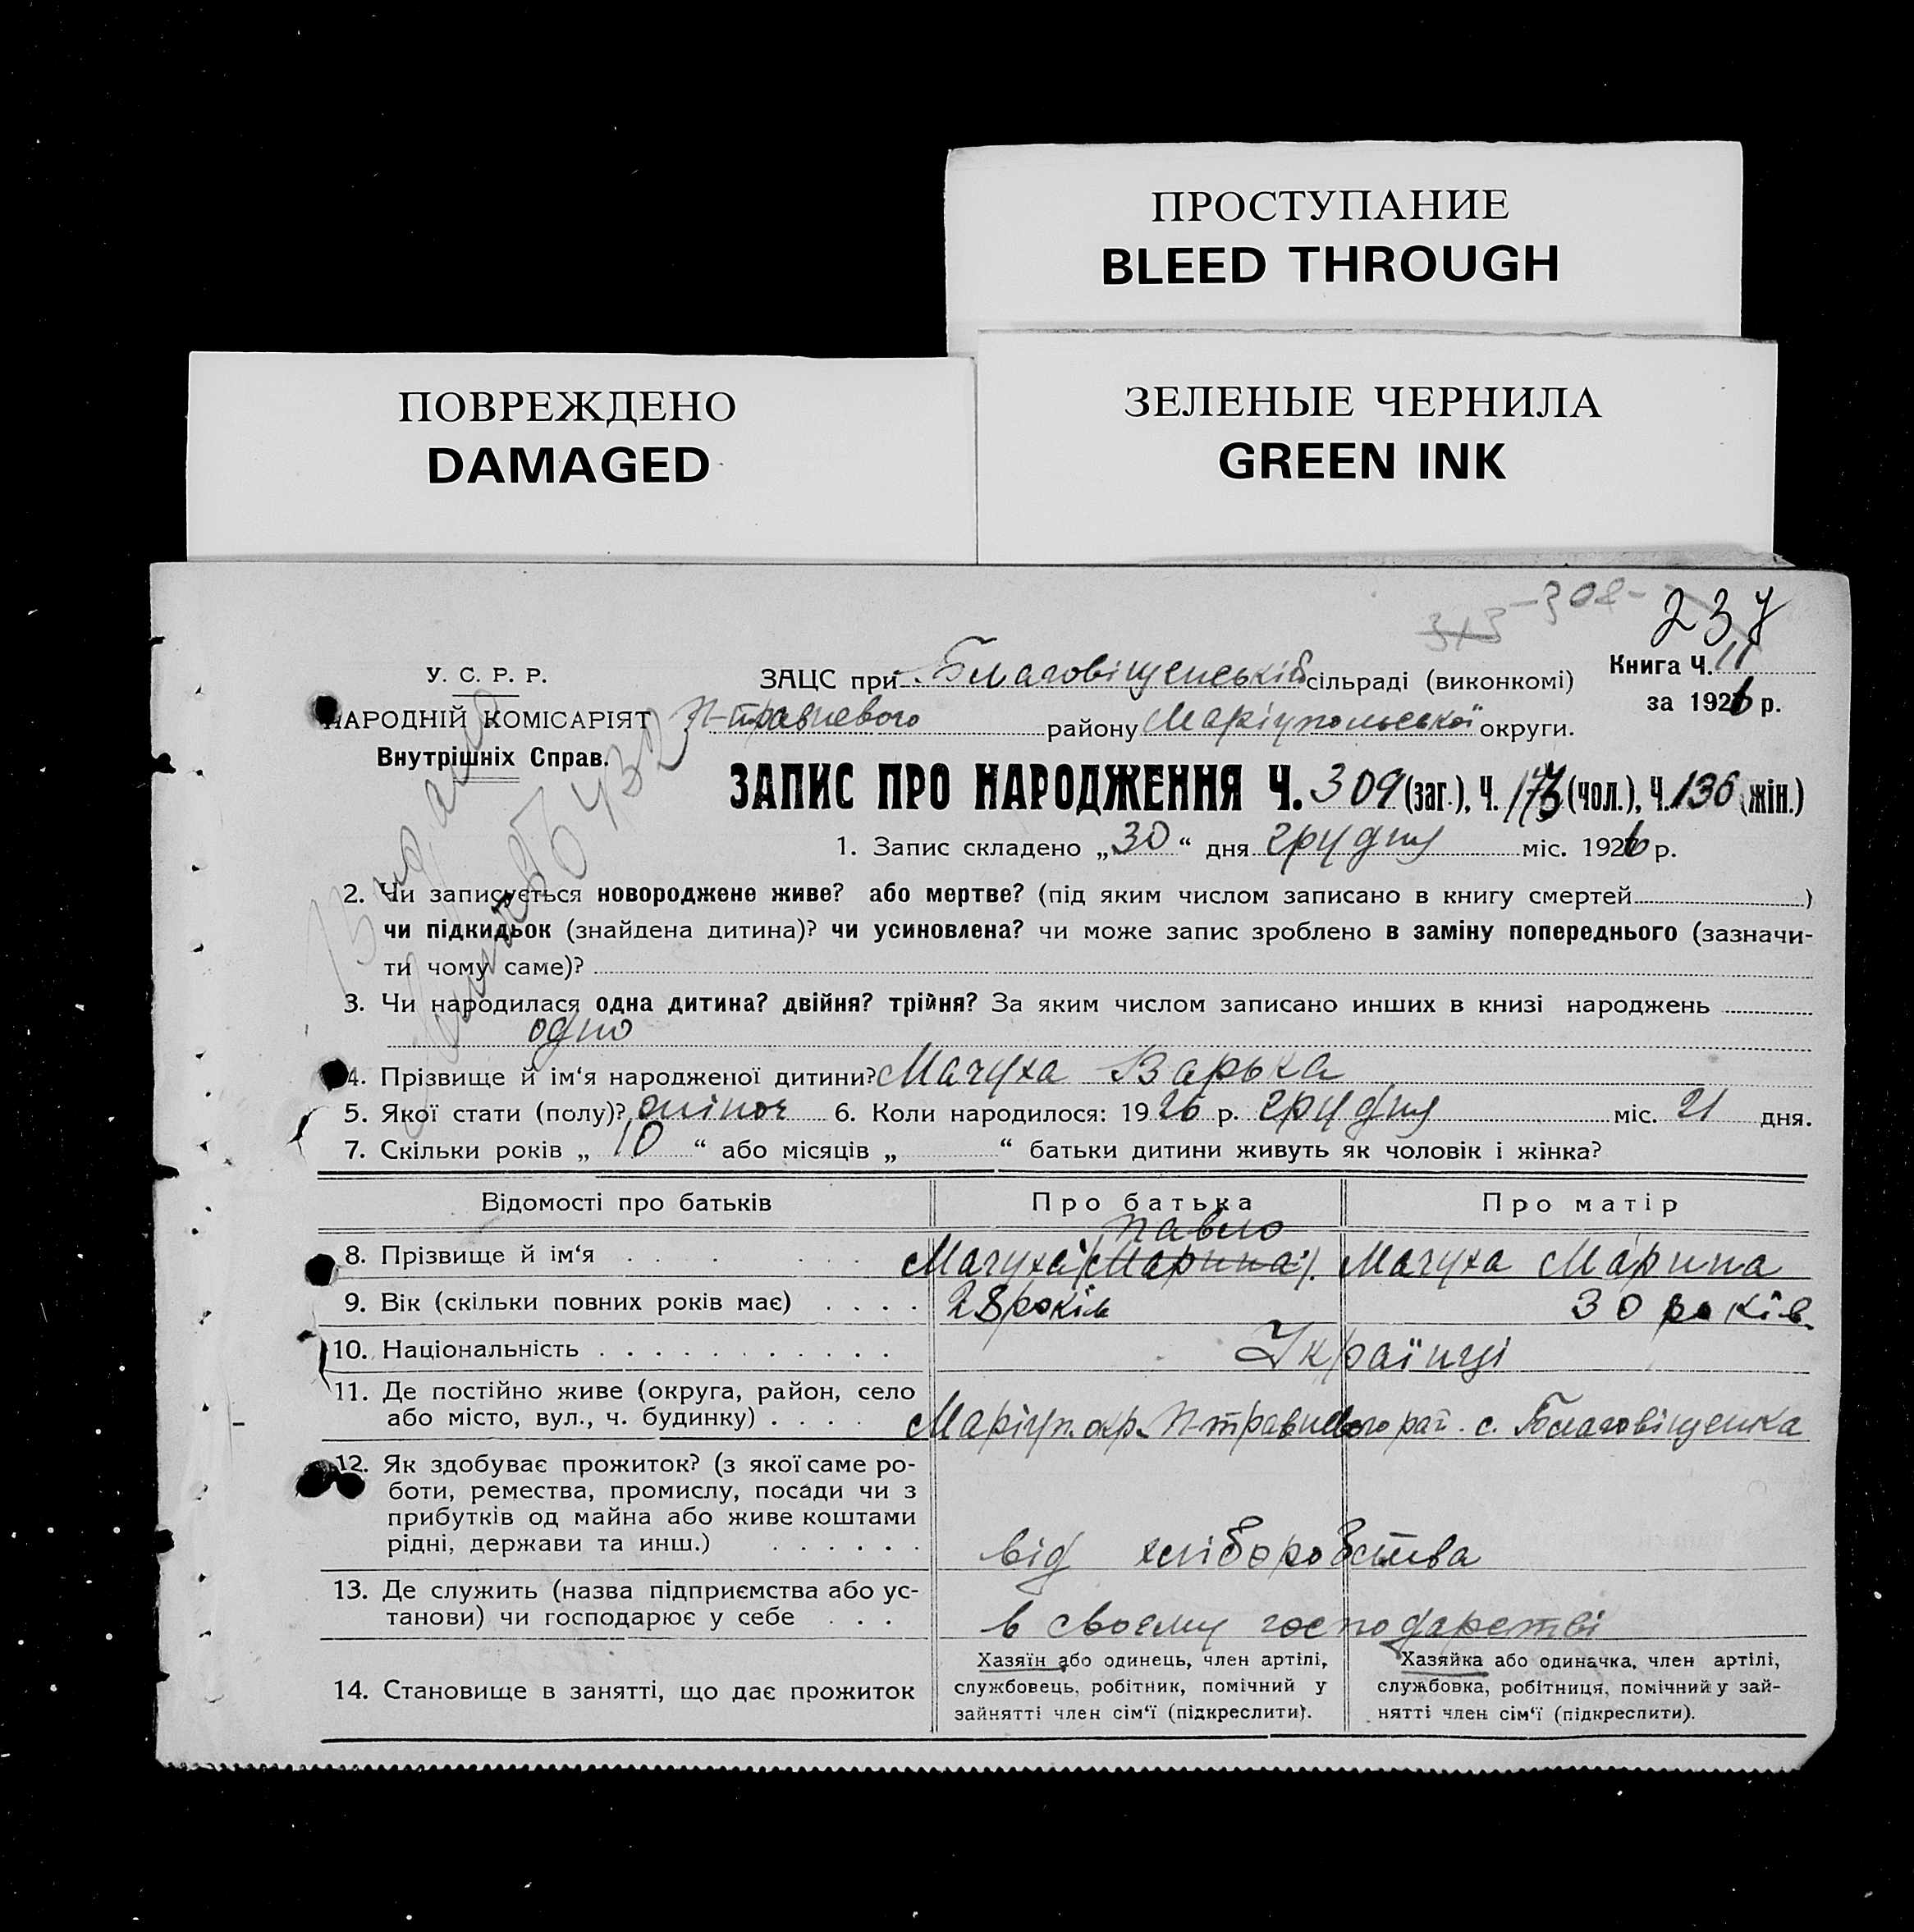 ПРОСТУПАНИЕ
BLEED THROUGH
ПОВРЕЖДЕНО
DAMAGED
ЗЕЛЕНЫЕ ЧЕРНИЛА
GREEN INK
-308-
237
У. С. Р. Р.
НАРОДНІЙ КОМІСАРІЯТ
Внутрішніх Справ.
ЗАЦС при Благовіщенській сільраді (виконкомі)
Книга Ч. 11
П-травневого району Маріупольської округи.
за 1926 р.
ЗАПИС ПРО НАРОДЖЕННЯ Ч. 309 (заг.), Ч. 173 (чол.), Ч. 136 (жін.)
1. Запис складено „30“ дня грудня міс. 1926 р.
2. Чи записується новороджене живе? або мертве? (під яким числом записано в книгу смертей )
чи підкидьок (знайдена дитина)? чи усиновлена? чи може запис зроблено в заміну попереднього (зазначи-
ти чому саме)?
3. Чи народилася одна дитина? двійня? трійня? За яким числом записано инших в книзі народжень
одно
4. Прізвище й ім‘я народженої дитини? Мачуха Варька
5. Якої стати (полу)? жіноч 6. Коли народилося: 1926 р. грудня міс. 21 дня.
7. Скільки років „ 10 “ або місяців „ “ батьки дитини живуть як чоловік і жінка?
Відомості про батьків Про батька Про матір
Павло
8. Прізвище й ім‘я Мачуха (Марина). Мачуха Марина
9. Вік (скільки повних років має) 28 років 30 років.
10. Національність Українці
11. Де постійно живе (округа, район, село
або місто, вул., ч. будинку) Маріуп. окр. П-травневого рай. с. Благовіщенка
12. Як здобуває прожиток? (з якої саме ро-
боти, ремества, промислу, посади чи з
прибутків од майна або живе коштами
рідні, держави та инш.) від хліборобства
13. Де служить (назва підприємства або ус-
танови) чи господарює у себе в своєму господарстві
14. Становище в занятті, що дає прожиток
Хазяїн або одинець, член артілі,
службовець, робітник, помічний у
зайнятті член сім‘ї (підкреслити).
Хазяйка або одиначка, член артілі,
службовка, робітниця, помічний у зай-
нятті член сім‘ї (підкреслити).